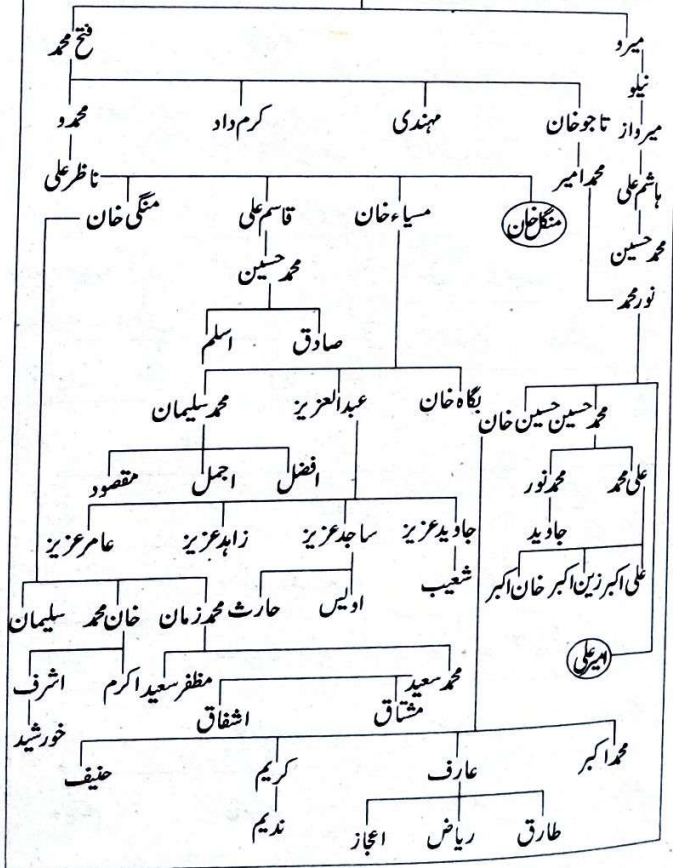 میرو فتح محمد
نیلو
تاجو خان مہندی کرم داد محمدو
میرواز
محمد امیر ناظر علی
ہاشم علی
منگل خان مسیاء خان قاسم علی منگی خان
محمد حسین محمد حسین
نور محمد
صادق اسلم
بگاہ خان عبدالعزیز محمد سلیمان
محمد حسین حسین خان
علی محمد محمد نور افضل اجمل مقصود
جاوید جاوید عزیز ساجد عزیز زاہد عزیز عامر عزیز
علی اکبر زین اکبر خان اکبر شعیب اویس حارث
محمد زمان خان محمد سلیمان
امیر علی
محمد سعید مظفر سعید اکرم اشرف
مشتاق اشفاق
خورشید
محمد اکبر عارف کریم حنیف
طارق ریاض اعجاز ندیم